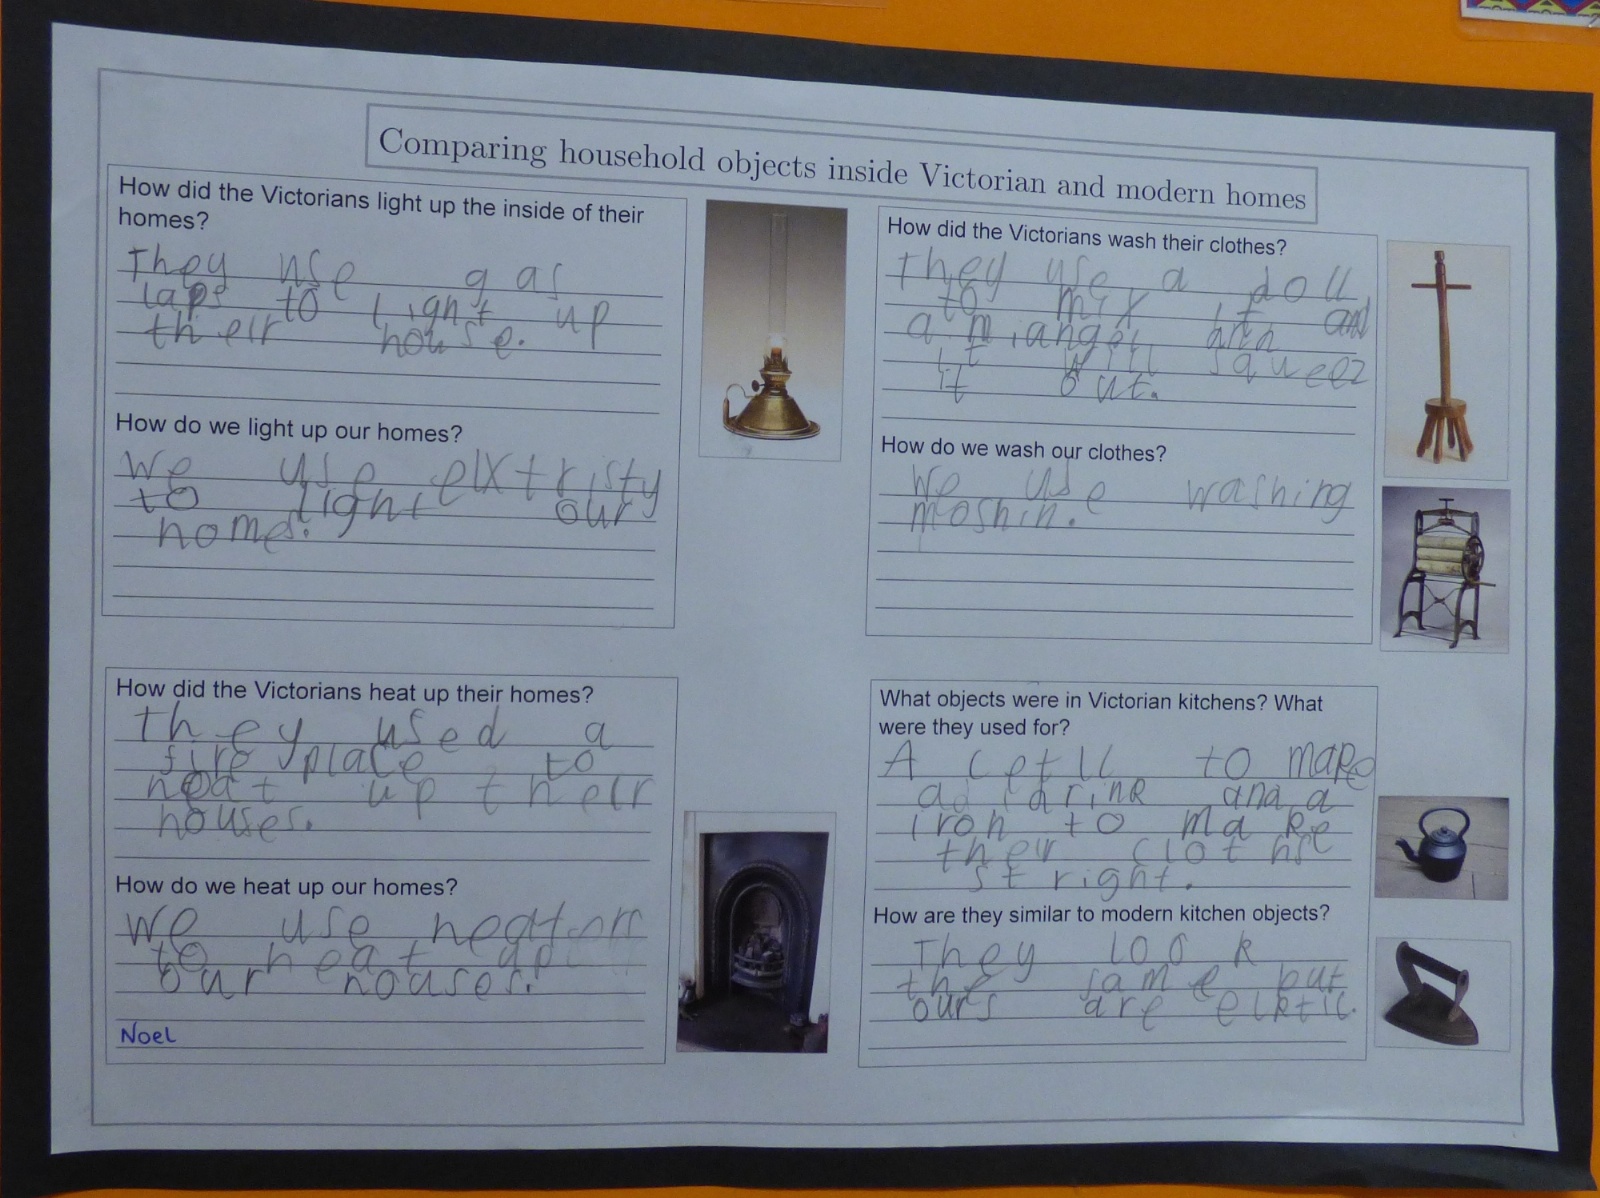 Comparing household objects inside Victorian and modern homes
How did the Victorians light up the inside of their
homes?
They use gas
laps to light up
their house.
How do we light up our homes?
We use elxtristy
to light our
homes.
How did the Victorians wash their clothes?
They use a doll
to mix it and
a miangel and
it will squeez
it out.
How do we wash our clothes?
We use washing
moshin.
How did the Victorians heat up their homes?
they used a
fire place to
heat up their
houses.
How do we heat up our homes?
We use heaters
to heat up
our houses.
Noel
What objects were in Victorian kitchens? What
were they used for?
A cetll to make
a drink and a
iron to make
their clothse
stright.
How are they similar to modern kitchen objects?
They look
the same but
ours are elktic.